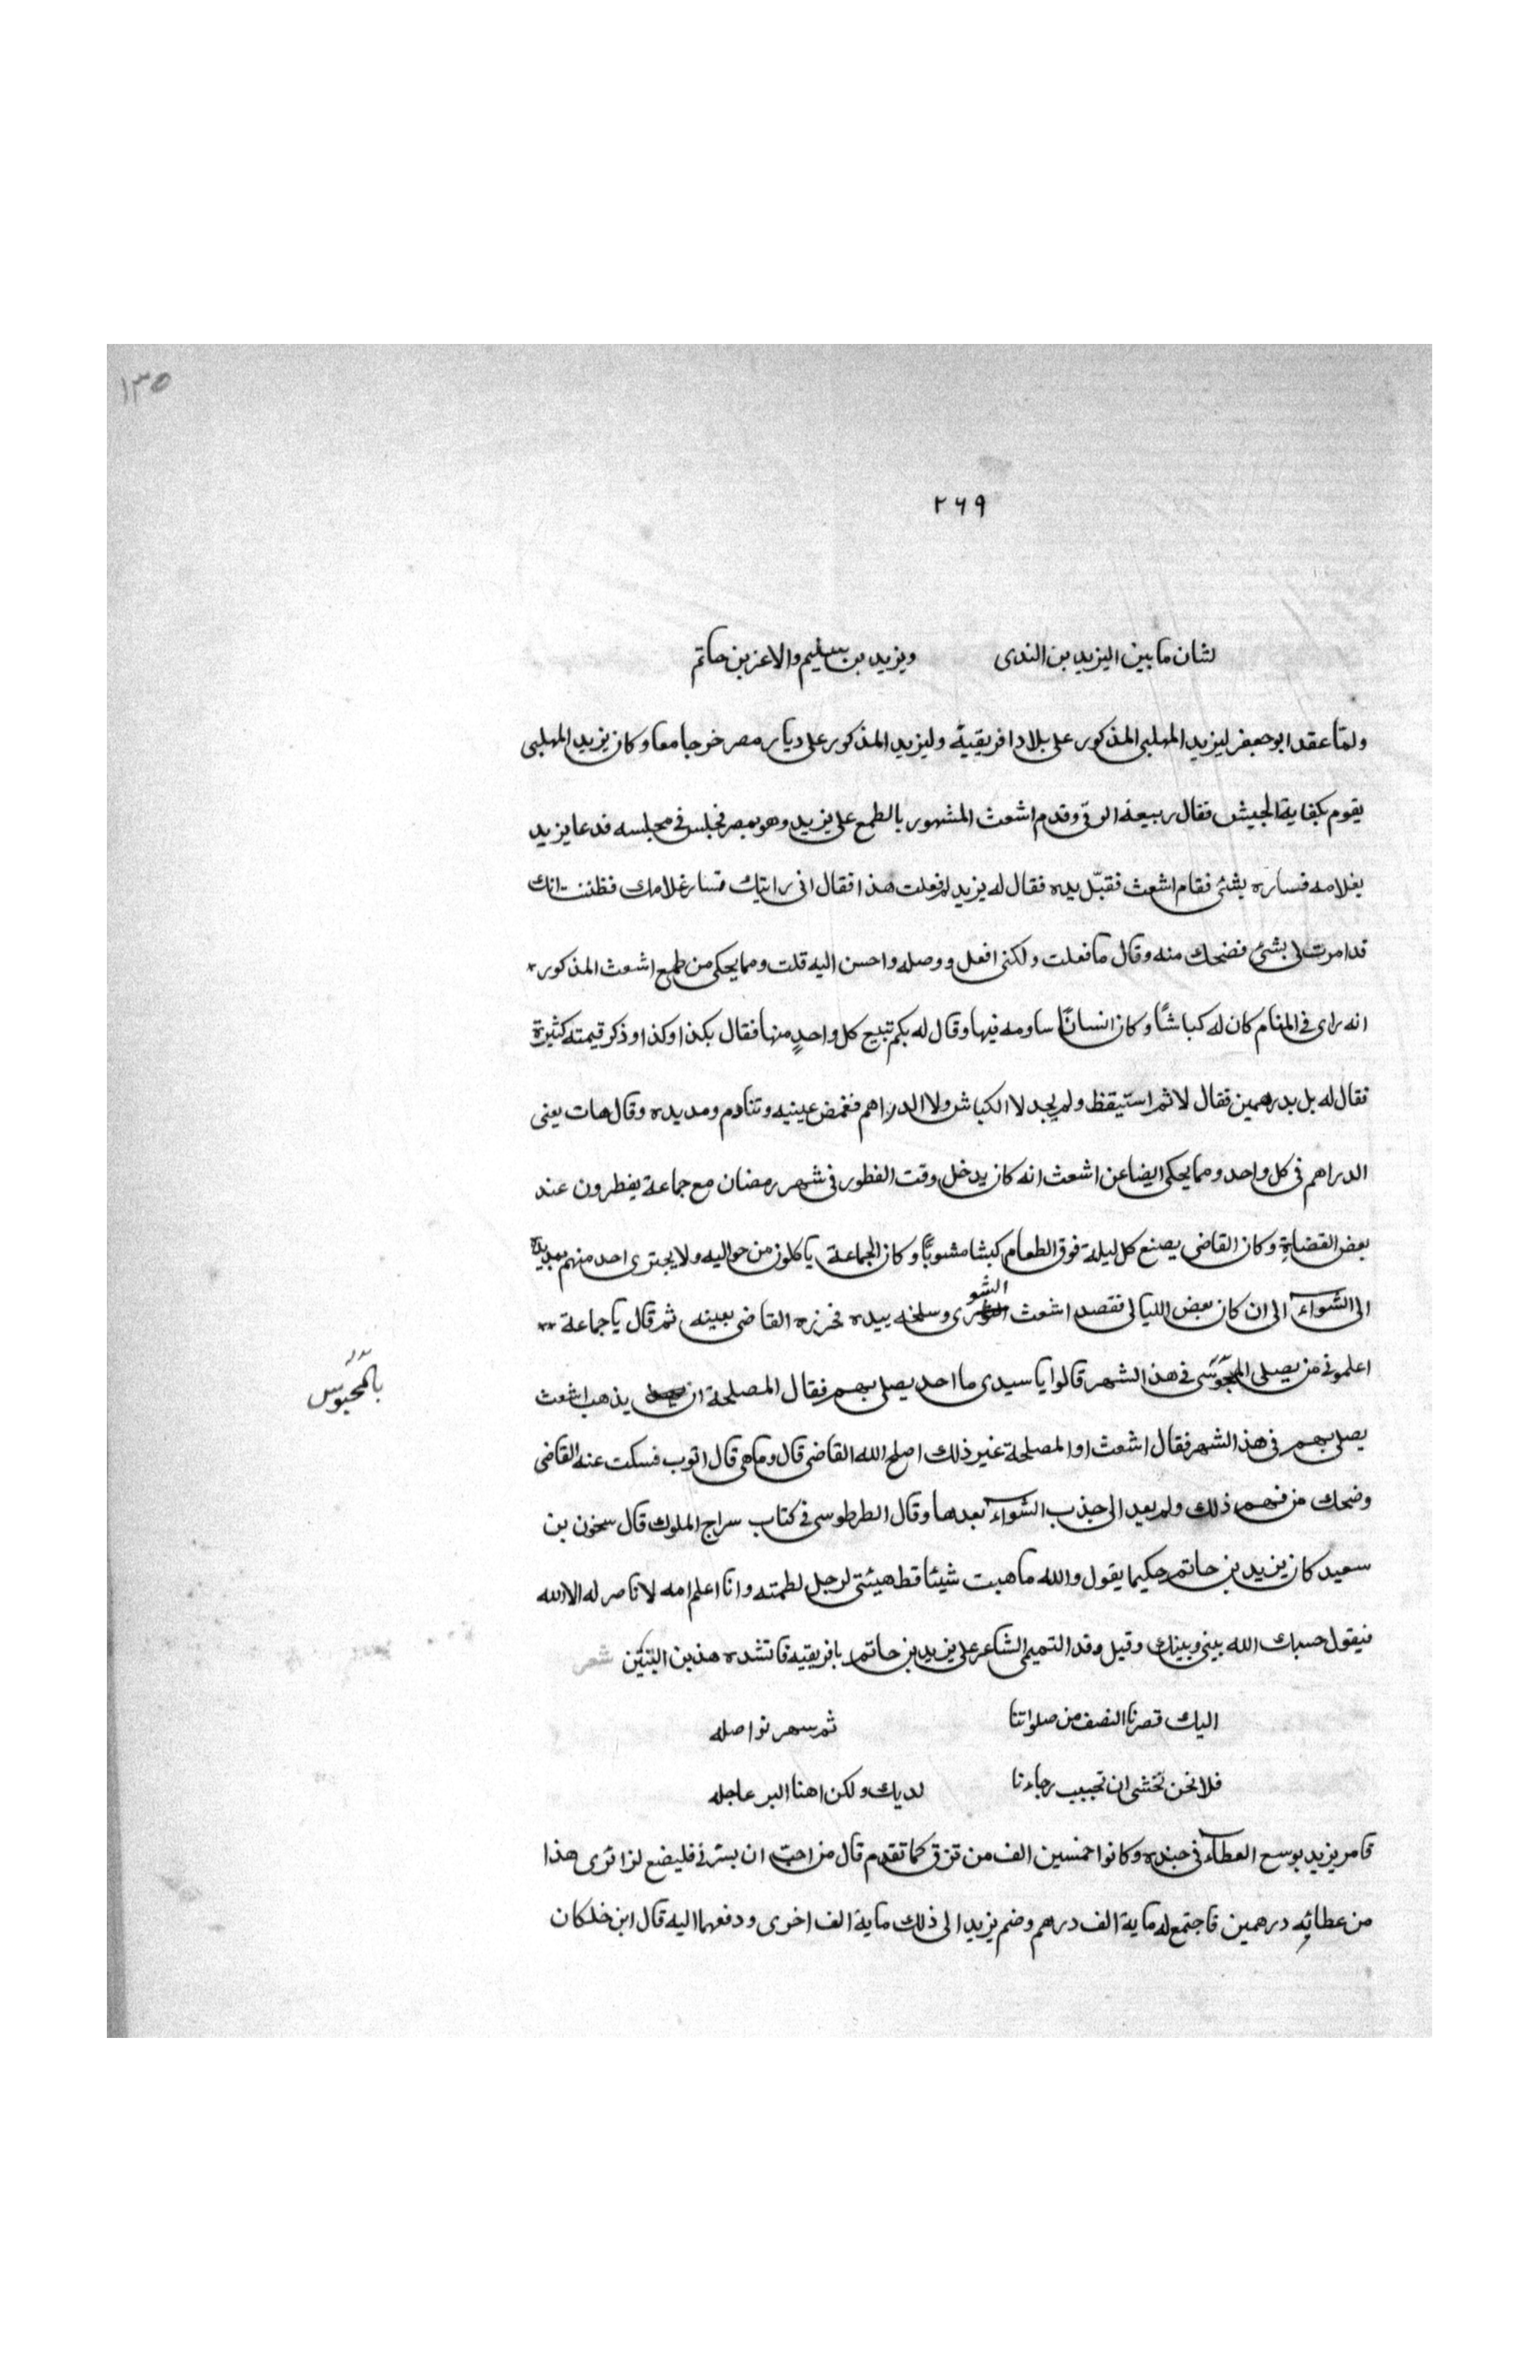 ١٣٥
٢٦٩
لشان ما بين اليزيد بن الندى ويزيد بن سليم والاعز بن حاتم
ولمّا عقد ابو جعفر ليزيد المهلبى المذكور على بلاد افريقية وليزيد المذكور على ديار مصر خرجا معا وكان يزيد المهلبى
يقوم بكفاية الجيش فقال ربيعة الرقى وقدم اشعث المشهور بالطمع على يزيد وهو بمصر فجلس فى مجلسه فدعا يزيد
بغلامه فساره بشئ فقام اشعث فقبّل يده فقال له يزيد لم فعلت هذا فقال انى رايتك تسار غلامك فظننت انك
قد امرت لى بشئ فضحك منه وقال ما فعلت ولكنى افعل ووصله واحسن اليه قلت ومما يحكى من طمع اشعث المذكور *
انه راى فى المنام كان له كباشًا وكان انسانًا ساومه فيها وقال له بكم تبيع كل واحدٍ منها فقال بكذا وكذا وذكر قيمته كثيرة
فقال له بل بدرهمين فقال لا ثم استيقظ ولم يجد لا الكباش ولا الدراهم فغمض عينيه وتنادم ومد يده وقال هات يعنى
الدراهم فى كل واحد ومما يحكى ايضا عن اشعث انه كان يدخل وقت الفطور فى شهر رمضان مع جماعة يفطرون عند
بعض القضاة وكان القاضى يصنع كل ليلة فوق الطعام كبشا مشويًا وكان الجماعة ياكلون من حواليه ولا يجترى احد منهم بمد يده
الى الشواء الى ان كان بعض الليالى فقصد اشعث الشوى وسلخه بيده فخزره القاضى بعينه ثم قال يا جماعة **
اعلمونى من يصلى المجوسى فى هذا الشهر قالوا يا سيدى ما احد يصلى بهم فقال المصلحة ان يذهب اشعث
بالمحبوس
يصلى بهم فى هذا الشهر فقال اشعث او المصلحة غير ذلك اصلح الله القاضى قال وما هى قال اتوب فسكت عنه القاضى
وضحك من فهم ذلك ولم يعد الى جذب الشواء بعدها وقال الطرطوسى فى كتاب سراج الملوك قال سحنون بن
سعيد كان يزيد بن حاتم حكيما يقول والله ما هبت شيئا قط هيبتى لرجل لطمته وانا اعلم امه لا ناصر له الا الله
فيقول حسبك الله بينى وبينك وقيل وفد التميمى الشاعر على يزيد بن حاتم بافريقيه فانشده هذين البيتين شعر
اليك قصرنا النصف من صلواتنا ثم سهر نواصله
فلا نحن نخشى ان تجيب رجاءنا لديك ولكن اهنا البر عاجله
فامر يزيد بوسع العطاء فى جنده وكانوا خمسين الف من تزق كما تقدم قال من احب ان يسرنى فليضع لزائرى هذا
من عطائه درهمين فاجتمع له ماية الف درهم وضم يزيد الى ذلك ماية الف اخرى ودفعها اليه قال ابن خلكان